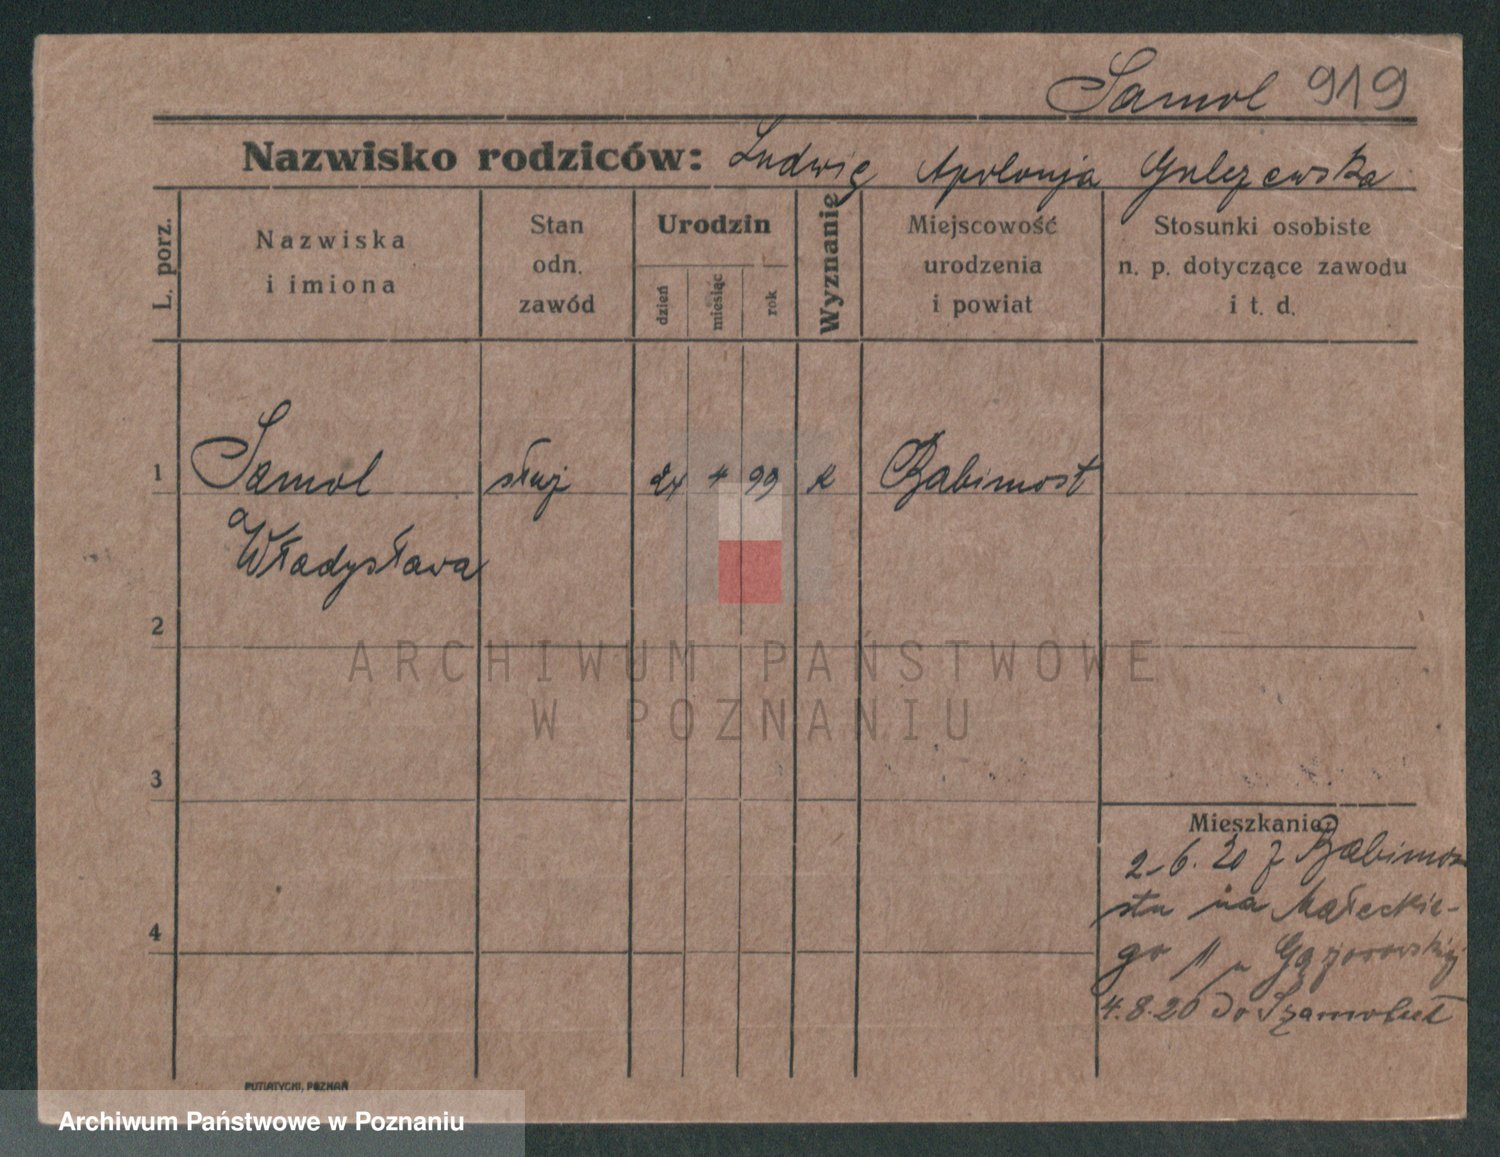 Samol 919
Nazwisko rodziców: Ludwig Apolonja
L. porz.
Nazwiska
i imiona
Stan
odn.
zawód
Urodzin
dzień
miesiąc
rok
Wyznanie
Miejscowość
urodzenia
i powiat
Stosunki osobiste
n. p. dotyczące zawodu
i t. d.
1
Samol służ 24 4 99 k Babimost
Władysława
2
3
4
Mieszkanie:
2-6.20 z Babimo
stu na Małeckie-
go 11 u
4.8.20 do Szamotuł
PUTIATYCKI, POZNAŃ
ARCHIWUM PAŃSTWOWE
W POZNANIU
Archiwum Państwowe w Poznaniu